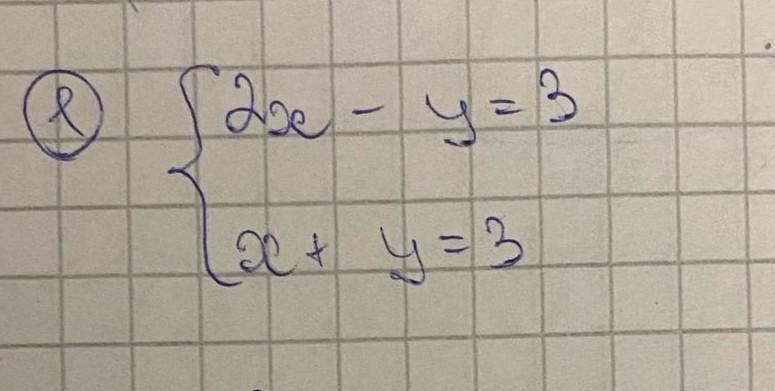 { 2x - y = 3
x + y = 3